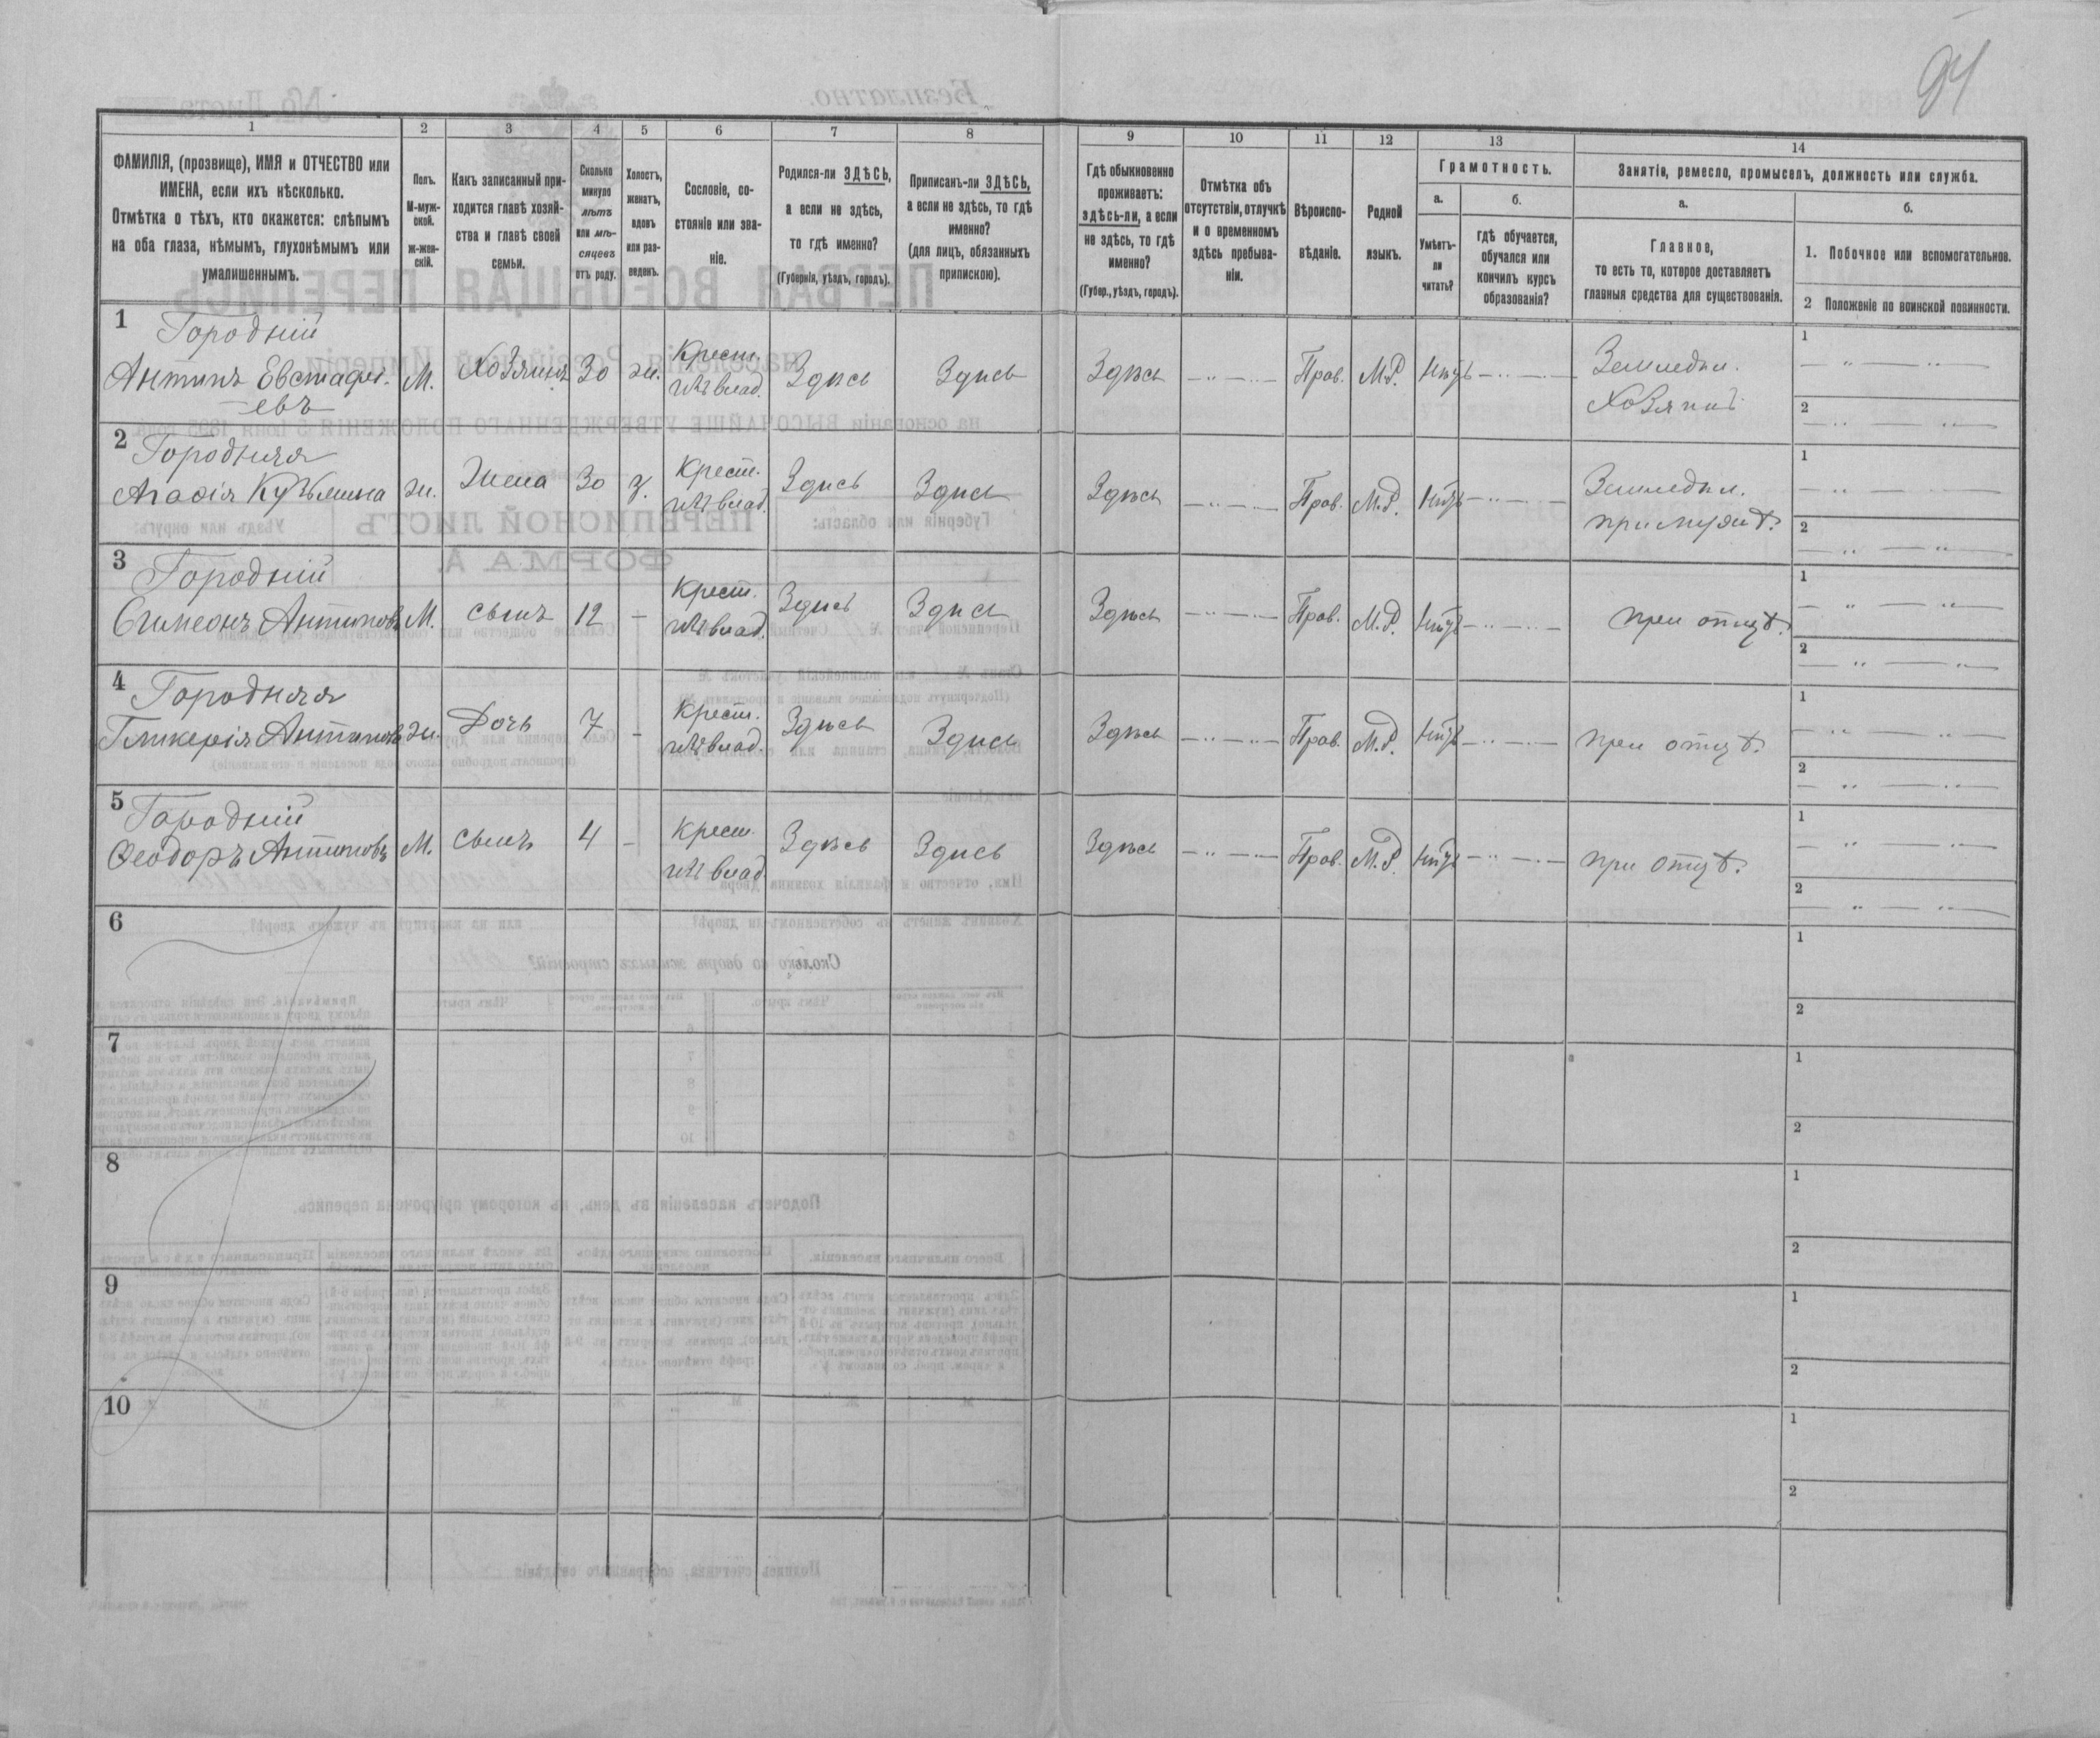 94
1
2
3
4
5
6
7
8
9
10
11
12
13
14
ФАМИЛІЯ, (прозвище), ИМЯ и ОТЧЕСТВО или
ИМЕНА, если ихъ нѣсколько.
Отмѣтка о тѣхъ, кто окажется: слѣпымъ
на оба глаза, нѣмымъ, глухонѣмымъ или
умалишеннымъ.
Полъ.
М-муж-
ской.
ж-жен-
скій.
Какъ записанный при-
ходится главѣ хозяй-
ства и главѣ своей
семьи.
Сколько
минуло
лѣтъ
или мѣ-
сяцевъ
отъ роду.
Холостъ,
женатъ,
вдовъ
или раз-
веденъ.
Сословіе, со-
стояніе или зва-
ніе.
Родился-ли ЗДѢСЬ,
а если не здѣсь,
то гдѣ именно?
(Губернія, уѣздъ, городъ).
Приписанъ-ли ЗДѢСЬ,
а если не здѣсь, то гдѣ
именно?
(для лицъ, обязанныхъ
припискою).
Гдѣ обыкновенно
проживаетъ:
здѣсь-ли, а если
не здѣсь, то гдѣ
именно?
(Губер., уѣздъ, городъ).
Отмѣтка объ
отсутствіи, отлучкѣ
и о временномъ
здѣсь пребыва-
ніи.
Вѣроиспо-
вѣданіе.
Родной
языкъ.
Грамотность.
а.
б.
Умѣетъ-
ли
читать?
гдѣ обучается,
обучался или
кончилъ курсъ
образованія?
Занятія, ремесло, промыселъ, должность или служба.
а.
б.
Главное,
то есть то, которое доставляетъ
главныя средства для существованія.
1. Побочное или вспомогательное.
2 Положеніе по воинской повинности.
1 Городній
Антипъ Евстафі-
евъ
М. Хозяинъ 30 ж. Крест. Здѣсь Здѣсь Здѣсь — " — " — Прав. М.Р. нѣтъ — " — " — Земледѣл.
Хозяинъ
1 — " — " —
2 — " — " —
2 Городняя
Агафія Кузьмина ж. Жена 30 з. Крест. Здѣсь Здѣсь Здѣсь — " — " — Прав. М.Р. нѣтъ — " — " — Земледѣл.
при мужѣ.
1 — " — " —
2 — " — " —
3 Городній
Симеонъ Антиповъ М. сынъ 12 — Крест. Здѣсь Здѣсь Здѣсь — " — " — Прав. М.Р. нѣтъ — " — " — при отцѣ.
1 — " — " —
2 — " — " —
4 Городняя
Гликерія Антипова ж. Дочь 7 — Крест. Здѣсь Здѣсь Здѣсь — " — " — Прав. М.Р. нѣтъ — " — " — при отцѣ.
1 — " — " —
2 — " — " —
5 Городній
Ѳеодоръ Антиповъ М. сынъ 4 — Крест. Здѣсь Здѣсь Здѣсь — " — " — Прав. М.Р. нѣтъ — " — " — при отцѣ.
1 — " — " —
2 — " — " —
6
1
2
7
1
2
8
1
2
9
1
2
10
1
2